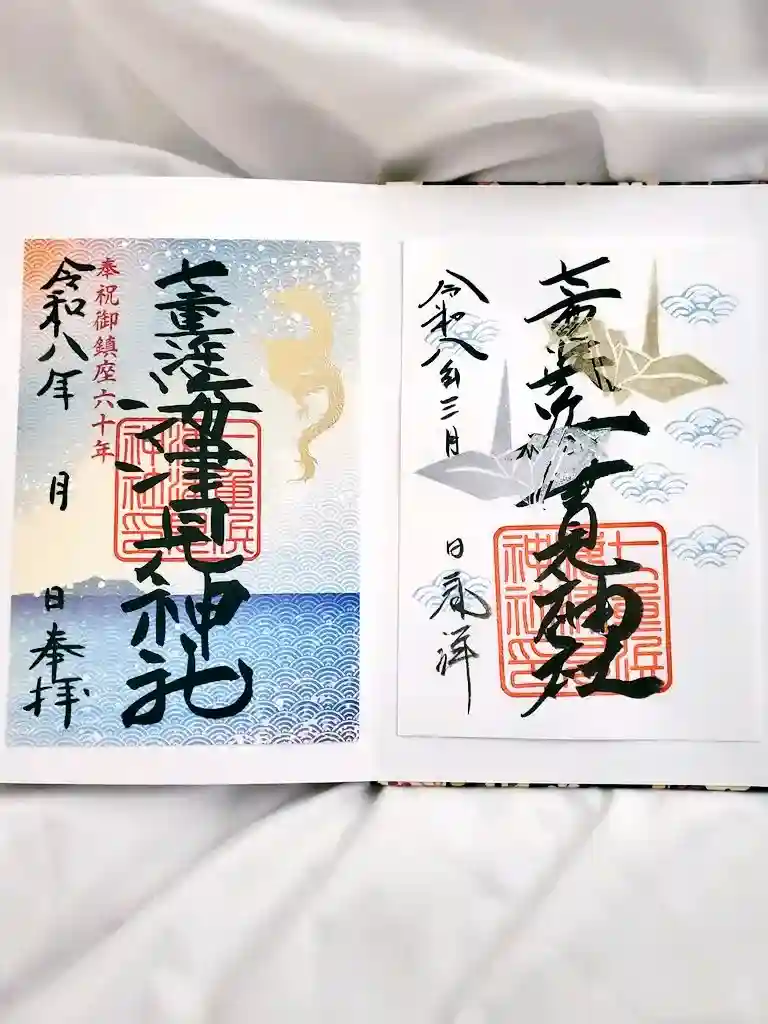 七重浜海津見神社
奉祝御鎮座六十年
令和八年 月 日奉拝
七重浜海津見神社
令和八年三月 日奉拝